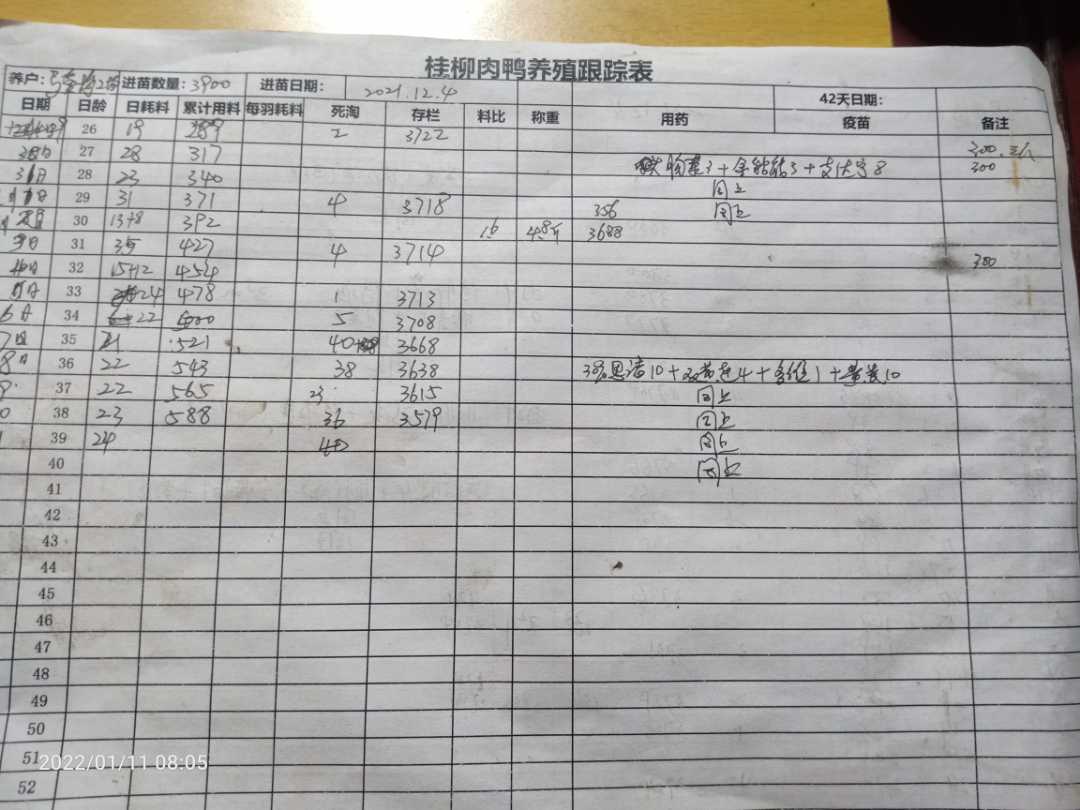 桂柳肉鸭养殖跟踪表
养户: 进苗数量:3900 进苗日期: 2021.12.4 42天日期:
日期 日龄 日耗料 累计用料 每羽耗料 死淘 存栏 料比 称重 用药 疫苗 备注
26 19 289 2 3722 300
27 28 317 300
28 23 340 同上
29 31 371 4 3718 356 同上
30 13+8 392 16 4.8斤 3688
31 35 427 4 3714 300
32 15+12 454
33 24 478 1 3713
6日 34 22 500 5 3708
7日 35 21 521 40 3668
8日 36 22 543 38 3638
9 37 22 565 23 3615 同上
0 38 23 588 36 3579 同上
1 39 24 40 同上
40 同上
41
42
43
44
45
46
47
48
49
50
51
52
2022/01/11 08:05